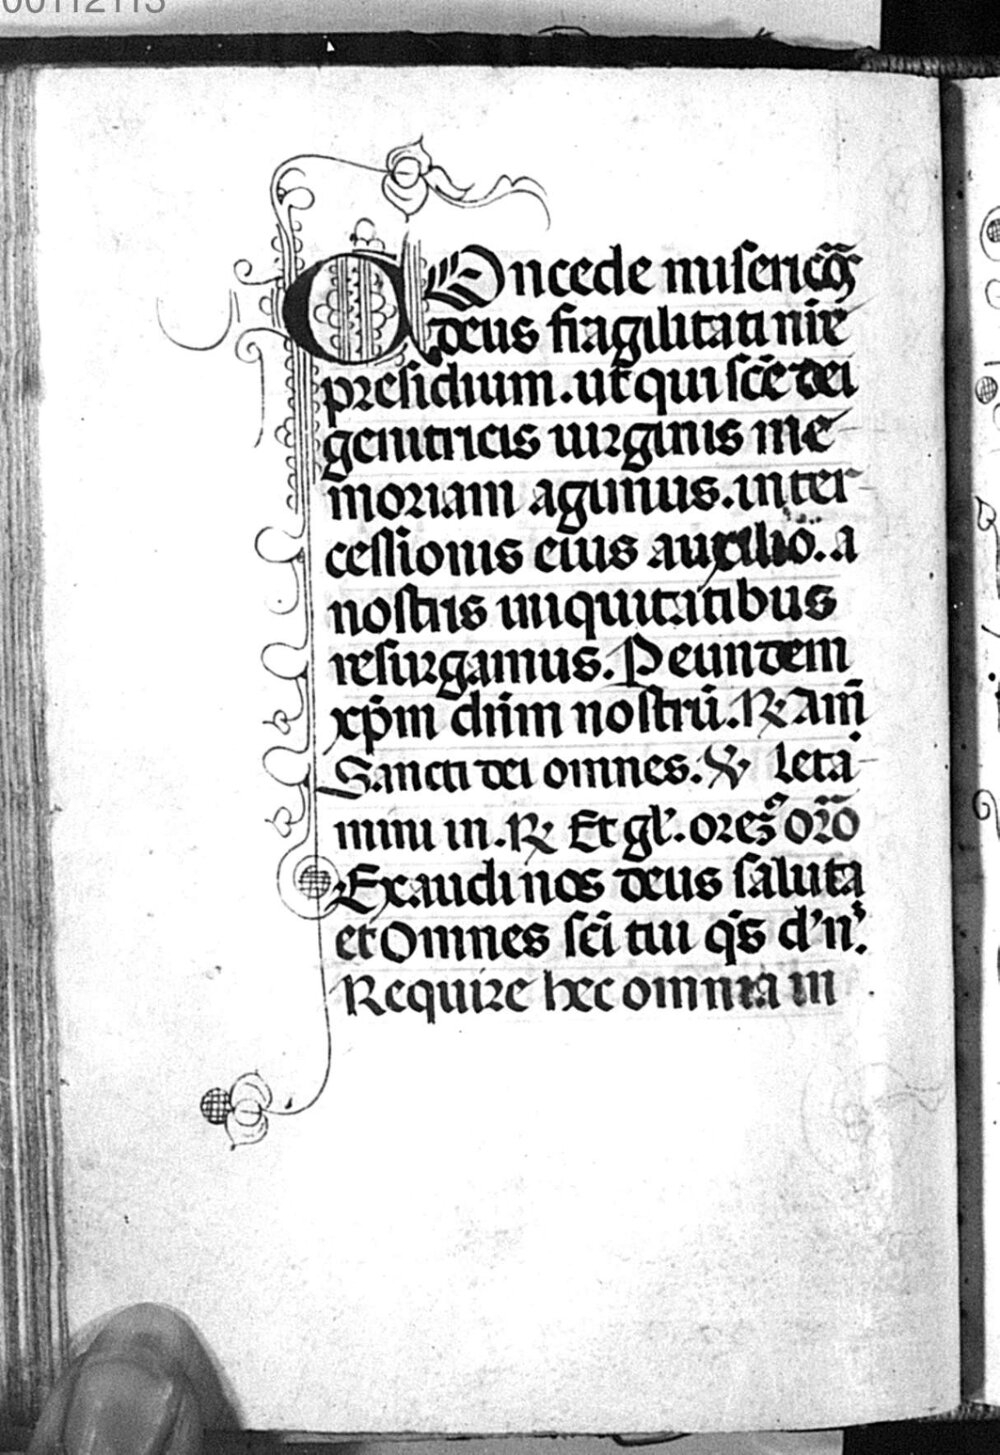 00112113
COncede misericōrs
deus fragilitati nr̄e
presidium. ut qui scē dei
genitricis uirginis me
moriam agimus. inter
cessionis eius auxilio. a
nostris iniquitatibus
resurgamus. Per eundem
xp̄m dn̄m nostrū. ℟ Am̄
Sancti dei omnes. ℣ Leta
mini in. ℟ Et gl'. or̄o
Exaudi nos deus saluta
et Omnes scī tui q̄s d'n'.
Require hec omnia in